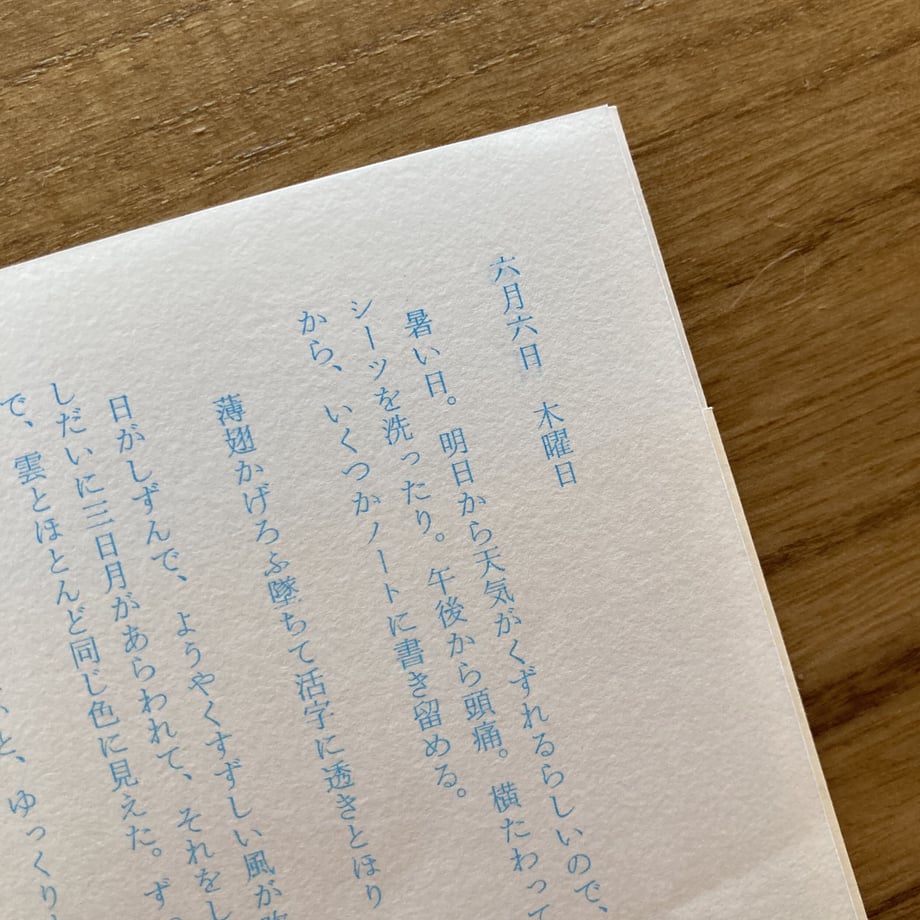 六月六日　木曜日
暑い日。明日から天気がくずれるらしいので、
シーツを洗ったり。午後から頭痛。横たわって
から、いくつかノートに書き留める。
薄翅かげろふ墜ちて活字に透きとほり
日がしずんで、ようやくすずしい風が
しだいに三日月があらわれて、それをし
で、雲とほとんど同じ色に見えた。ず
と、ゆっくり